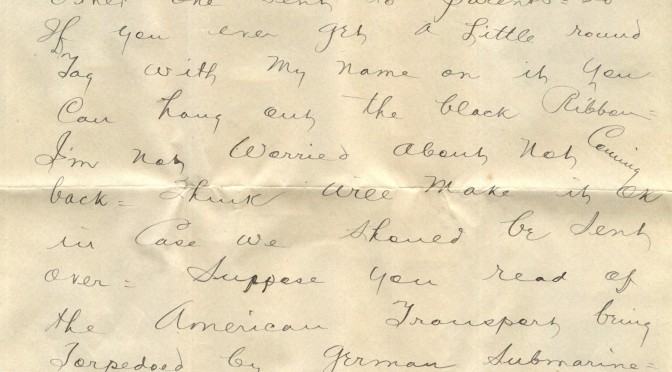 other one sent to parents = so
If you ever get a little round
Tag with My name on it you
Can hang out the black Ribbon =
I'm not Worried About not Coming
back = Think Will Make it OK
in Case we should be Sent
over = Suppose you read of
the American Transport being
Torpedoed by German Submarine =